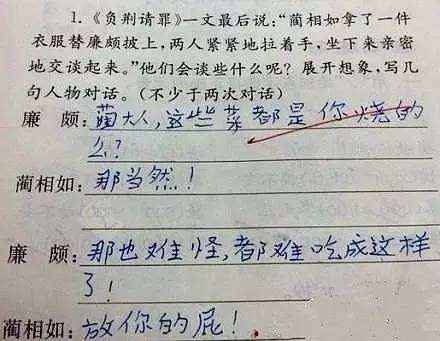 1.《负荆请罪》一文最后说:“蔺相如拿了一件
衣服替廉颇披上,两人紧紧地拉着手,坐下来亲密
地交谈起来。”他们会谈些什么呢?展开想象,写几
句人物对话。(不少于两次对话)
廉 颇:蔺大人,这些菜都是你烧的
么?
蔺相如:那当然!
廉 颇:那也难怪,都难吃成这样
了!
蔺相如:放你的屁!